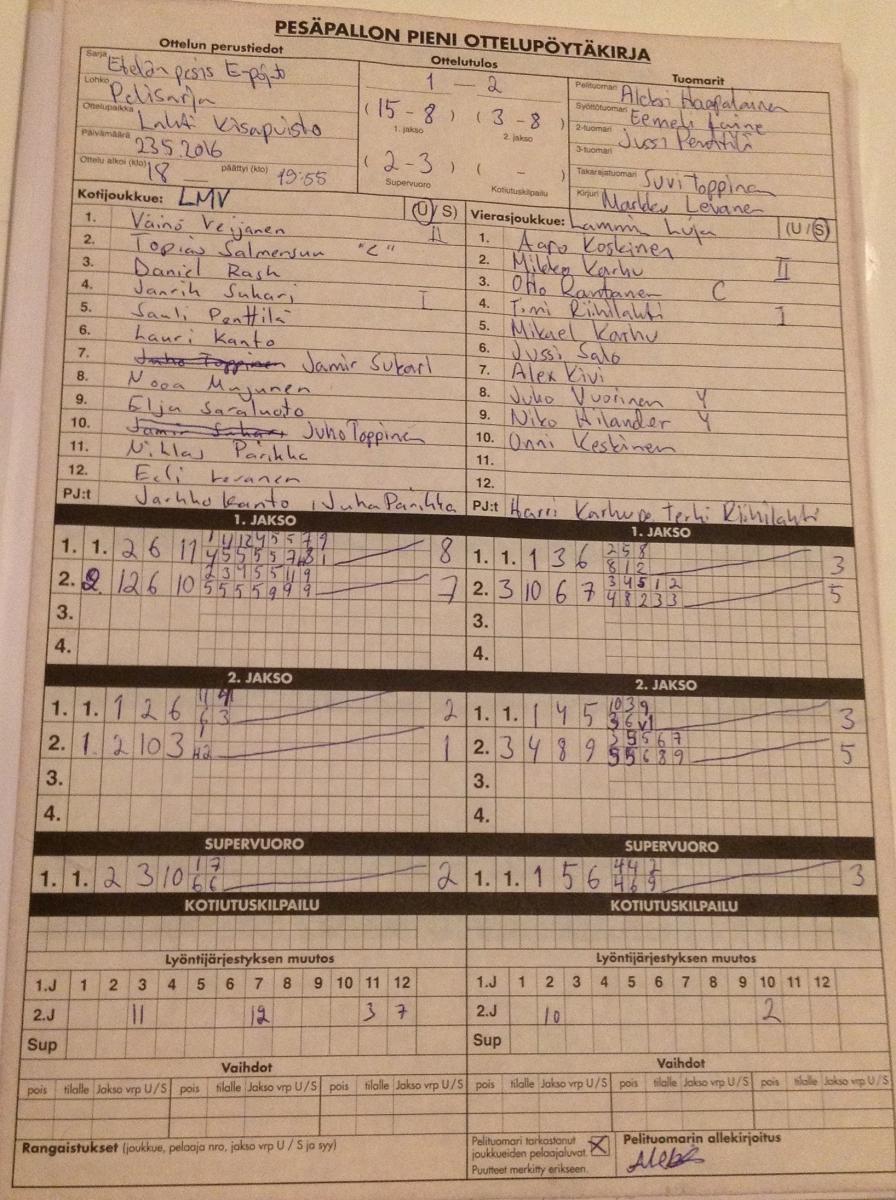 PESÄPALLON PIENI OTTELUPÖYTÄKIRJA
Ottelun perustiedot
Sarja Etelän pesis E-pojat
Lohko Pelisarja
Ottelupaikka Lahti Kisapuisto
Päivämäärä 23.5.2016
Ottelu alkoi (klo) 18 päättyi (klo) 19:55
Ottelutulos
1 – 2
(15 - 8) (3 - 8)
1. jakso 2. jakso
(2 - 3) ( - )
Supervuoro Kotiutuskilpailu
Tuomarit
Pelituomari Aleksi Haapalainen
Syöttötuomari Eemeli Laine
2-tuomari Jussi Penttilä
3-tuomari
Takarajatuomari Suvi Toppinen
Kirjuri Markku Levanen
Kotijoukkue: LMV (U/S)
1. Väinö Veijanen II
2. Topias "C"
3. Daniel Rash
4. Janrik Suhari I
5. Sauli Penttilä
6. Lauri Kanto
7. Juho Toppinen Jamir Sukari
8. Nooa
9. Elja Saraluoto
10. Jamir Suhari Juho Toppinen
11. Niklas Parikka
12. Eeli Levanen
PJ:t Jarkko Kanto, Juha Parikka
Vierasjoukkue: Lammin Luja (U/S)
1. Aapo Koskinen
2. Mikko Karhu II
3. Otto Rantanen C
4. Timi Riihilahti I
5. Mikael Karhu
6. Jussi Salo
7. Alex Kivi
8. Juho Vuorinen Y
9. Niko Hilander Y
10. Onni Keskinen
11.
12.
PJ:t Harri Karhu Terhi Riihilahti
1. JAKSO
1. 1. 2 6 11 8
2. 2. 12 6 10 7
3.
4.
1. JAKSO
1. 1. 1 3 6 2 5 8 3
8 1 2
2. 3 10 6 7 3 4 5 1 2 5
4 8 2 3 3
3.
4.
2. JAKSO
1. 1. 1 2 6 2
6 3
2. 1 2 10 3 1
3.
4.
2. JAKSO
1. 1. 1 4 5 10 3 9 3
3 6
2. 3 4 8 9 5
5 5 6 8 9
3.
4.
SUPERVUORO
1. 1. 2 3 10 1 7 2
6 6
SUPERVUORO
1. 1. 1 5 6 4 4 3
4 6 9
KOTIUTUSKILPAILU
KOTIUTUSKILPAILU
Lyöntijärjestyksen muutos
1.J 1 2 3 4 5 6 7 8 9 10 11 12
2.J 11 12 3 7
Sup
Lyöntijärjestyksen muutos
1.J 1 2 3 4 5 6 7 8 9 10 11 12
2.J 10 2
Sup
Vaihdot
pois tilalle Jakso vrp U/S pois tilalle Jakso vrp U/S pois tilalle Jakso vrp U/S
Vaihdot
pois tilalle Jakso vrp U/S pois tilalle Jakso vrp U/S pois tilalle Jakso vrp U/S
Rangaistukset (joukkue, pelaaja nro, jakso vrp U / S ja syy)
Pelituomari tarkastanut
joukkueiden pelaajaluvat. X
Puutteet merkitty erikseen.
Pelituomarin allekirjoitus